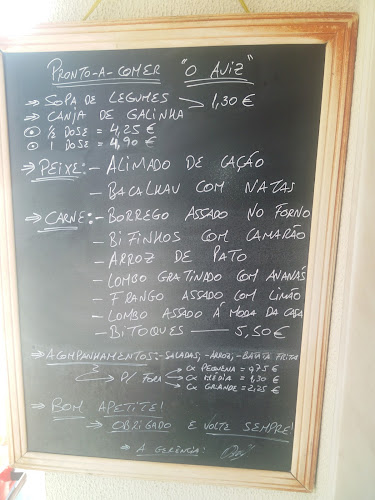 PRONTO-A-COMER "O AVIZ"
→ SOPA DE LEGUMES > 1,30 €
→ CANJA DE GALINHA
⊙ ½ DOSE = 4,25 €
⊙ 1 DOSE = 4,90 €
→ PEIXE:- ALIMADO DE CAÇÃO
- BACALHAU COM NATAS
→ CARNE:- BORREGO ASSADO NO FORNO
- BIFINHOS COM CAMARÃO
- ARROZ DE PATO
- LOMBO GRATINADO COM ANANÁS
- FRANGO ASSADO COM LIMÃO
- LOMBO ASSADO À MODA DA CASA
- BITOQUES — 5,50 €
→ ACOMPANHAMENTOS:- SALADAS, - ARROZ, - BATATA FRITAS
→ CX PEQUENA = 0,75 €
→ P/ FORA → CX MÉDIA = 1,30 €
→ CX GRANDE = 2,25 €
→ BOM APETITE!
→ OBRIGADO E VOLTE SEMPRE!
→ A GERÊNCIA: